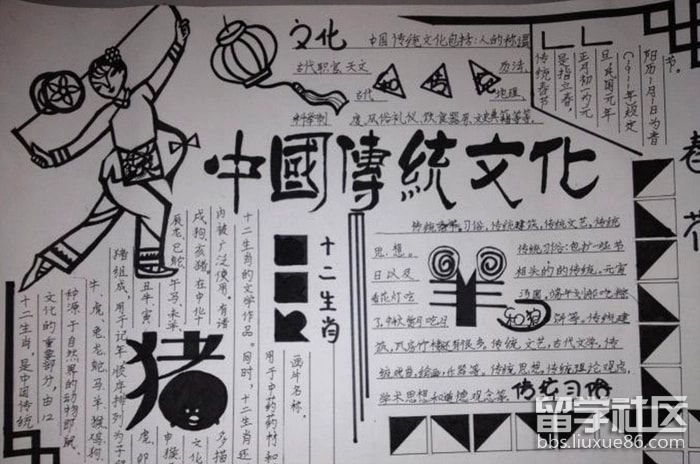 文化
中国传统文化包括:人的称谓
古代职官,天文
历法,
古代
地理,
科举制
度,风俗礼仪,饮食器用,文史典籍等等.
中國傳統文化
节。
阳历1月1日为春
(1911年)规定
旦,民国元年
正月初一为元
是指立春,
传统春节
春
十二生肖
传统习俗,传统建筑,传统文艺,传统
思想。
传统习俗:包括一些节
日以及
相关的的传统。元宵
看花灯吃
汤圆。端午划船吃粽
子,中秋赏月吃月
和狗
传统建
羊
传统文艺,古代文学,传
统戏曲,绘画,乐器等。传统思想,传统理论观点,
学术思想和道德观念等。
传统习俗
十二生肖的文学作品。同时,十二生肖还
内被广泛使用。有诸
戌狗、亥猪,在中华
辰龙、巳蛇、
午马、未羊、
丑牛、寅
猪组成,用于记年,顺序排列为子
牛、虎、兔、龙、蛇、马、羊、猴、鸡、狗、
种源于自然界的动物即鼠、
文化的重要部分,由12
十二生肖,是中国传统
猪
画片名称.
用于中药药材和
留学社区
bbs.liuxue86.com